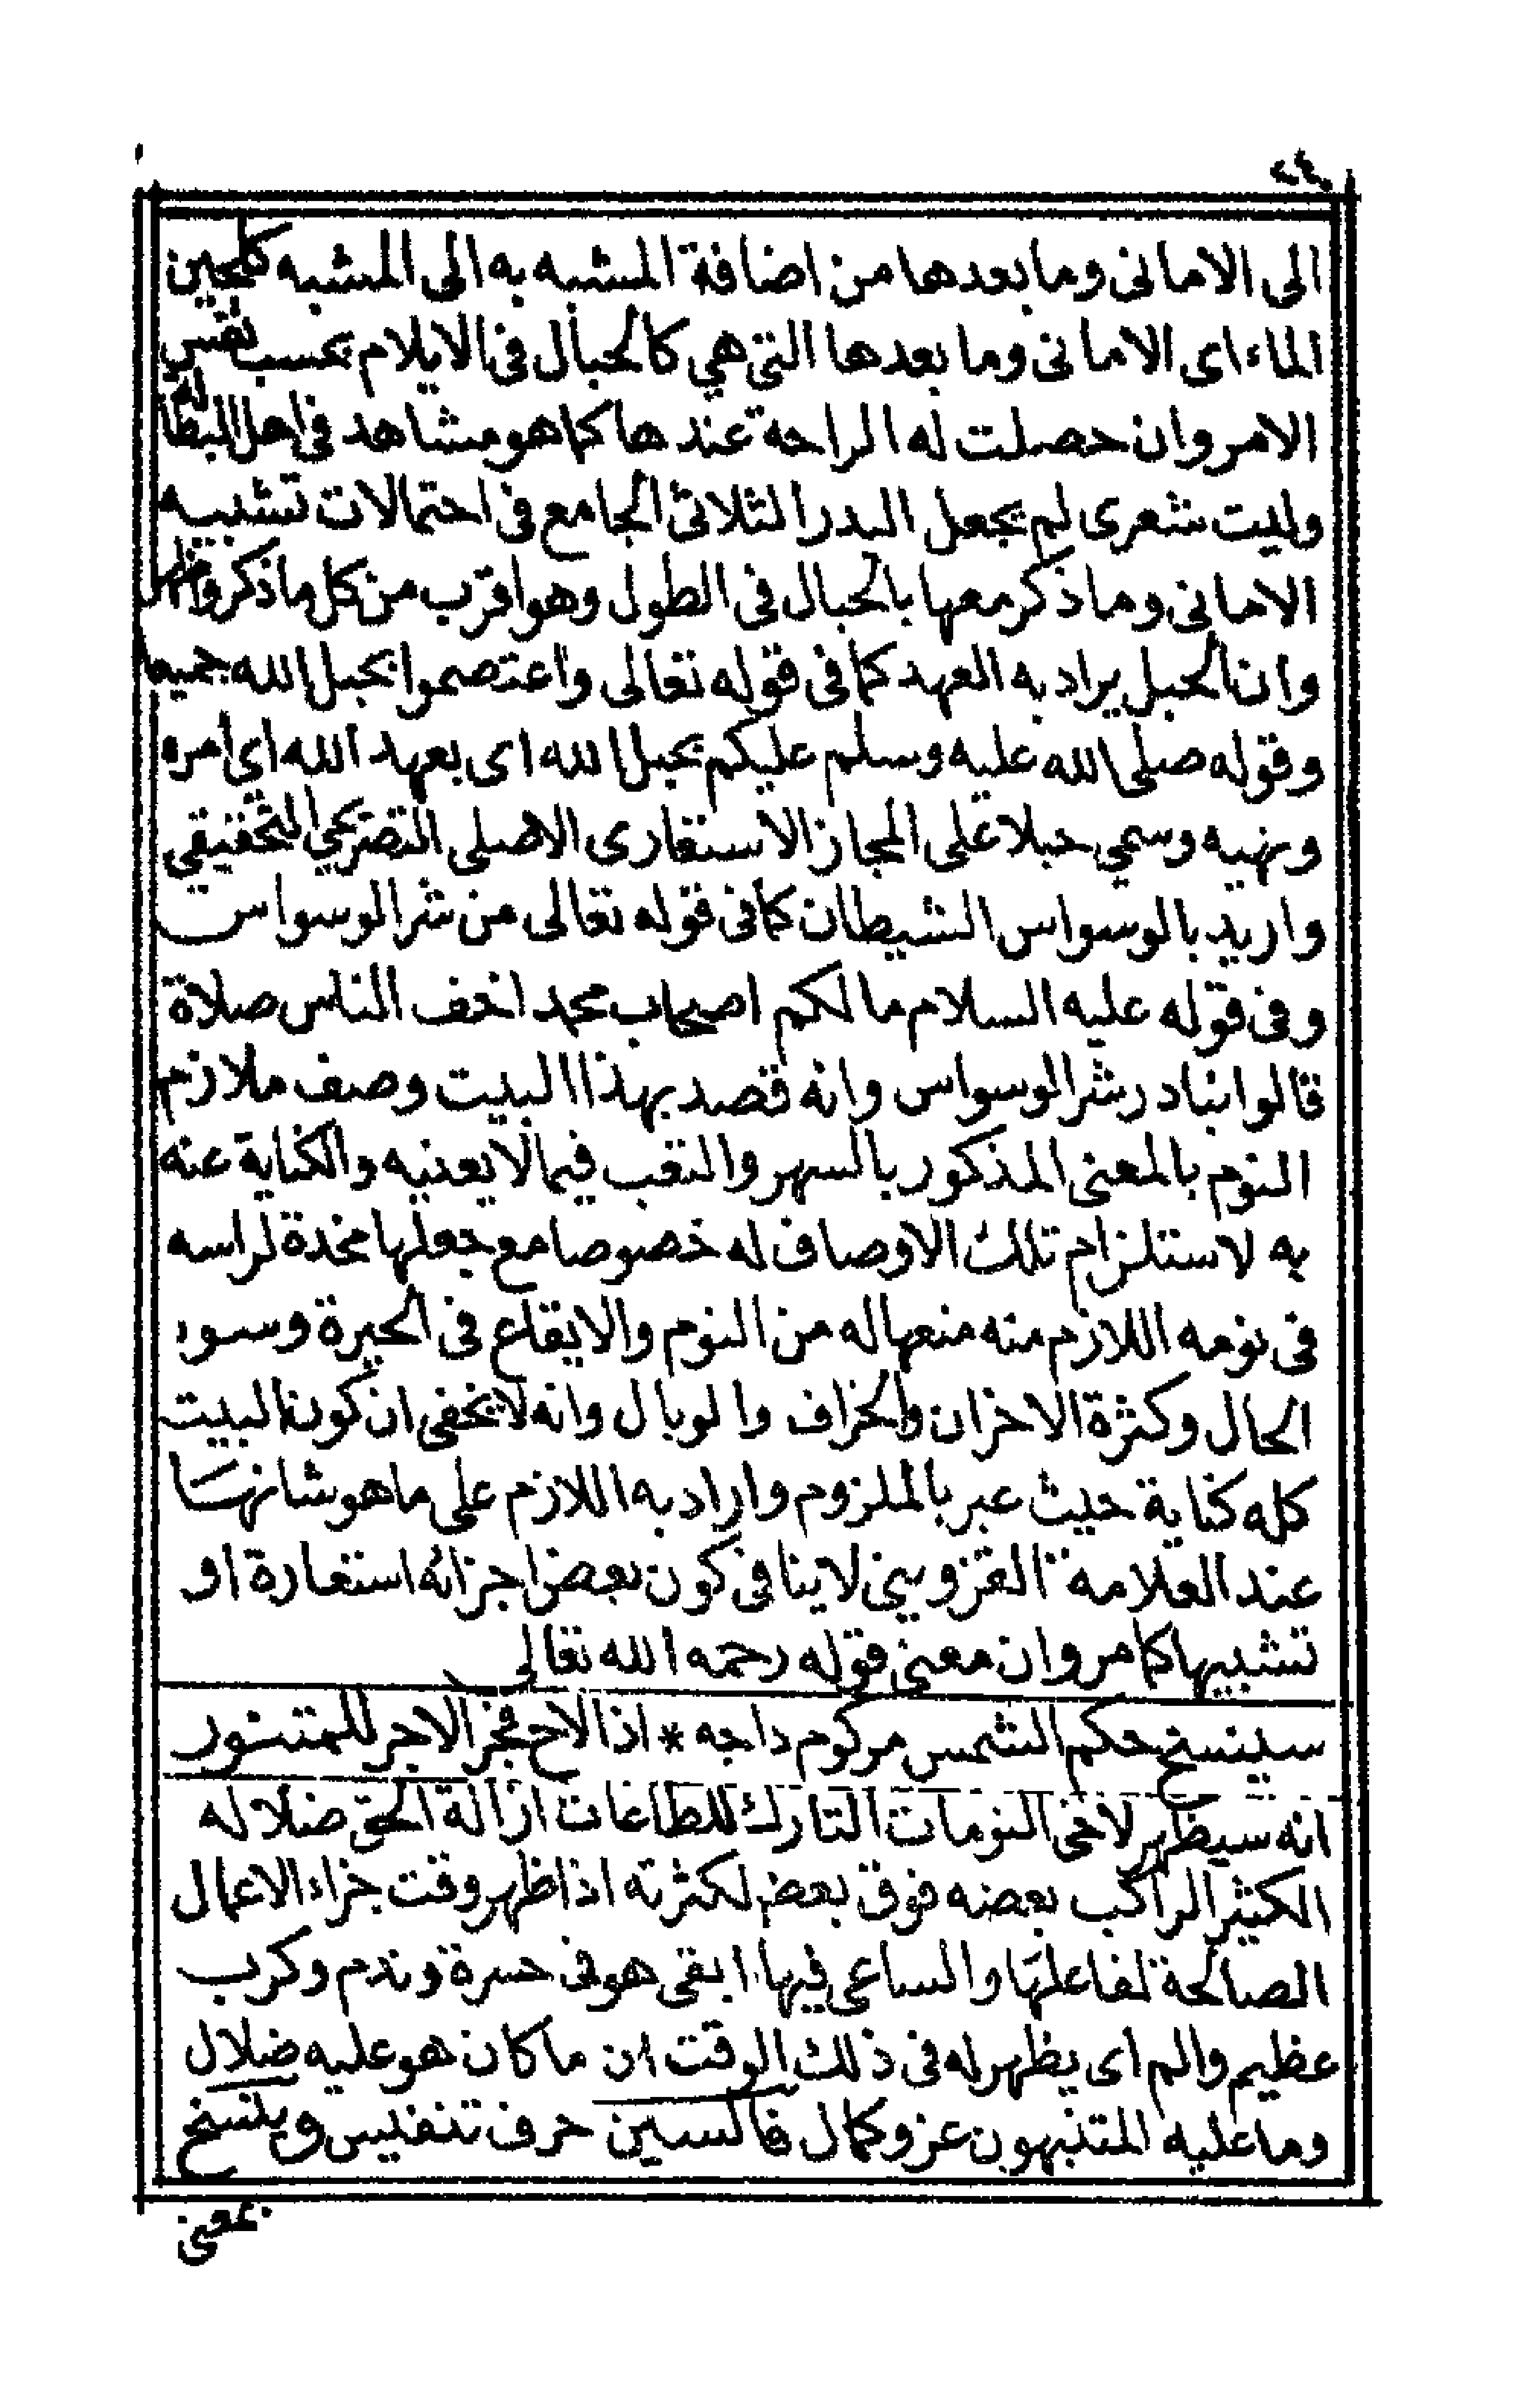 ٢٤٠
الى الامانى وما بعدها من اضافة المشبه به الى المشبه كلجين
الماء اى الامانى وما بعدها التى هي كالحبال فى الايلام بحسب نفس
الامر وان حصلت له الراحة عندها كما هو مشاهد فى اهل البطالة
وليت شعرى لم يجعل البدر الثلاثى الجامع فى احتمالات تشبيه
الامانى وما ذكر معها بالحبال فى الطول وهو اقرب من كل ما ذكروا
وان الحبل يراد به العهد كما فى قوله تعالى واعتصموا بحبل الله جميعا
وقوله صلى الله عليه وسلم عليكم بحبل الله اى بعهد الله اي امره
ونهيه وسمي حبلا على المجاز الاستعارى الاصلى التصريحي التحقيقي
واريد بالوسواس الشيطان كما فى قوله تعالى من شر الوسواس
وفى قوله عليه السلام ما لكم اصحاب محمد اخف الناس صلاة
قالوا نبادر شر الوسواس وانه قصد بهذا البيت وصف ملازم
النوم بالمعنى المذكور بالسهر والتعب فيما لا يعنيه والكناية عنه
به لاستلزام تلك الاوصاف له خصوصا مع جعلها مخدة لراسه
فى نومه اللازم منه منعها له من النوم والايقاع فى الحيرة وسوء
الحال وكثرة الاحزان والخراف والوبال وانه لا يخفى ان كون البيت
كله كناية حيث عبر بالملزوم واراد به اللازم على ما هو شانها
عند العلامة القزويني لا ينافى كون بعض اجزائه استعارة او
تشبيها كما مر وان معنى قوله رحمه الله تعالى
سينسخ حكم الشمس مركوم داجه * اذا لاح فجر الاجر للمتنور
انه سيظهر لاخى النومات التارك للطاعات ازالة الحق ضلاله
الكثير الراكب بعضه فوق بعض لكثرته اذا ظهر وقت جزاء الاعمال
الصالحة لفاعلها والساعى فيها ابقى هو فى حسرة وندم وكرب
عظيم والم اى يظهر له فى ذلك الوقت ان ما كان هو عليه ضلال
وما عليه المتنبهون عز وكمال فالسين حرف تنفيس وينسخ
بمعنى